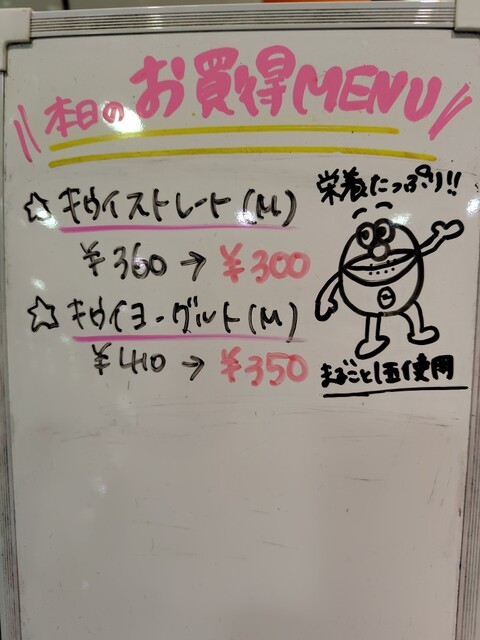 本日のお買得MENU
☆キウイストレート(M)
¥360→¥300
☆キウイヨーグルト(M)
¥410→¥350
栄養たっぷり!!
まるごと1個使用